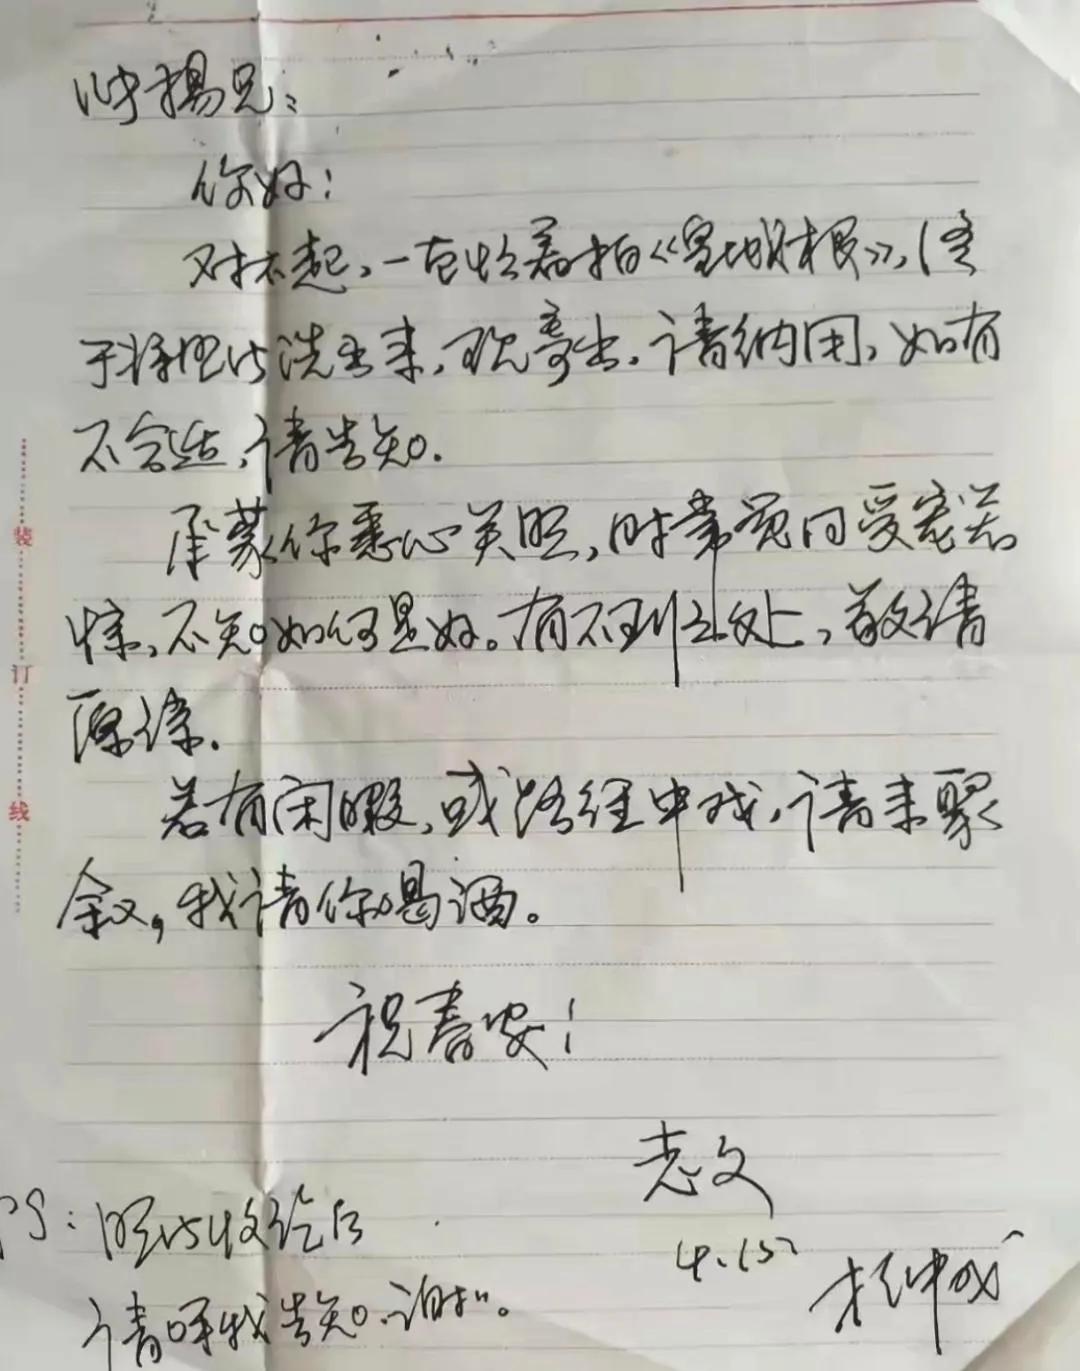 你好!
对不起,一直忙着拍《》,终
于将照片洗出来,现寄出。请纳用,如有
不合适,请告知.
承蒙你悉心关照,时常觉得受宠若
惊,不知如何是好。有不到之处,敬请
原谅.
若有闲暇,或路经中戏,请来聚
叙,我请你喝酒。
祝春安!
志文
4.15
PS:照片收讫后
请呼我告知.谢谢。
装
订
线